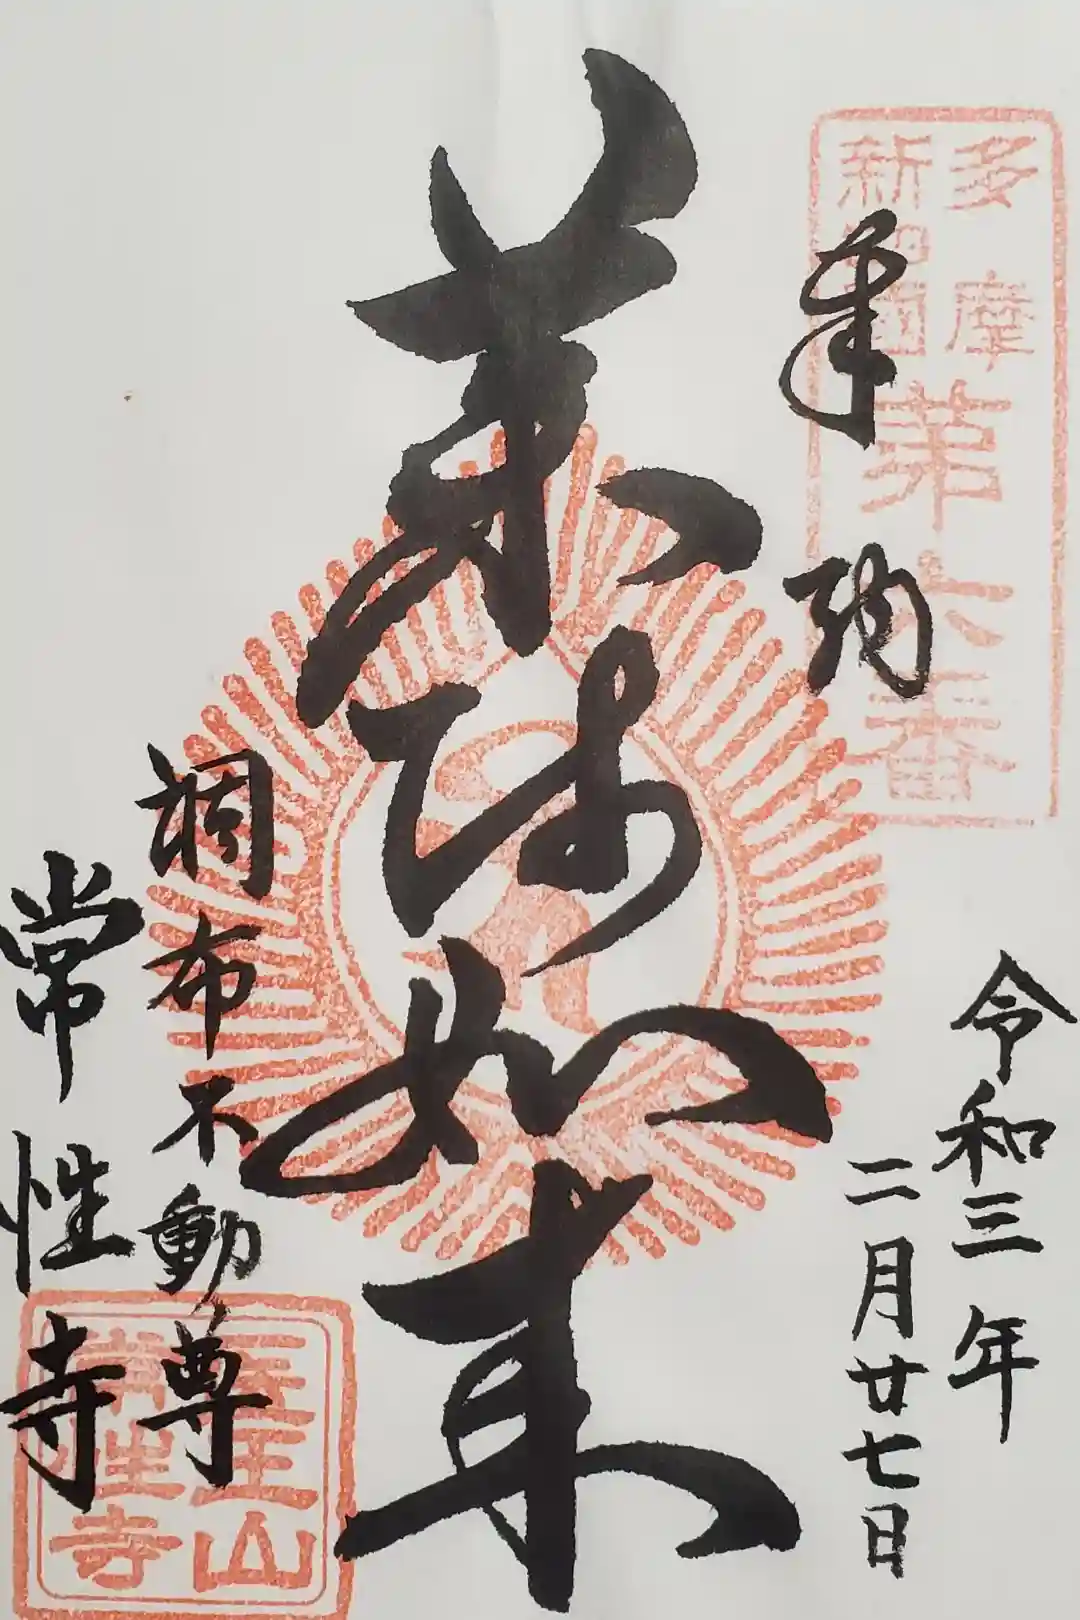 多摩
新四国
第六番
奉納
令和三年
二月廿七日
薬師如来
調布不動尊
常性寺
医王山
常性寺